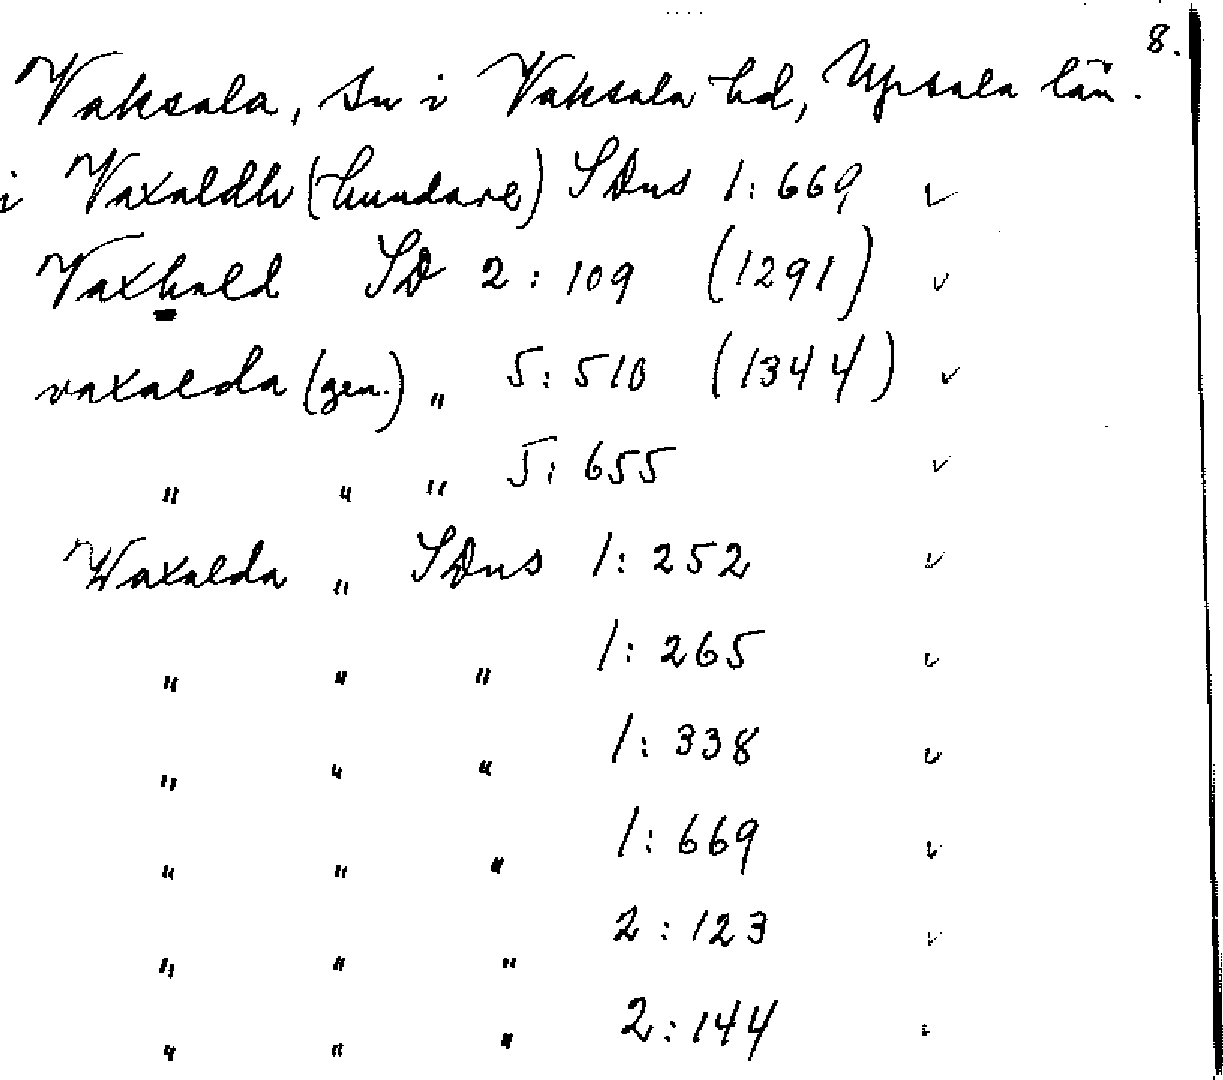 8.
Vaksala, sn i Vaksala hd, Upsala län.
i Vaxaldh (hundare) SDns 1:669 ✓
Vaxhald SD 2:109 (1291) ✓
vaxalda (gen.) „ 5:510 (1344) ✓
„ „ „ 5:655 ✓
Waxalda „ SDns 1:252 ✓
„ „ „ 1:265 ✓
„ „ „ 1:338 ✓
„ „ „ 1:669 ✓
„ „ „ 2:123 ✓
„ „ „ 2:144 ✓